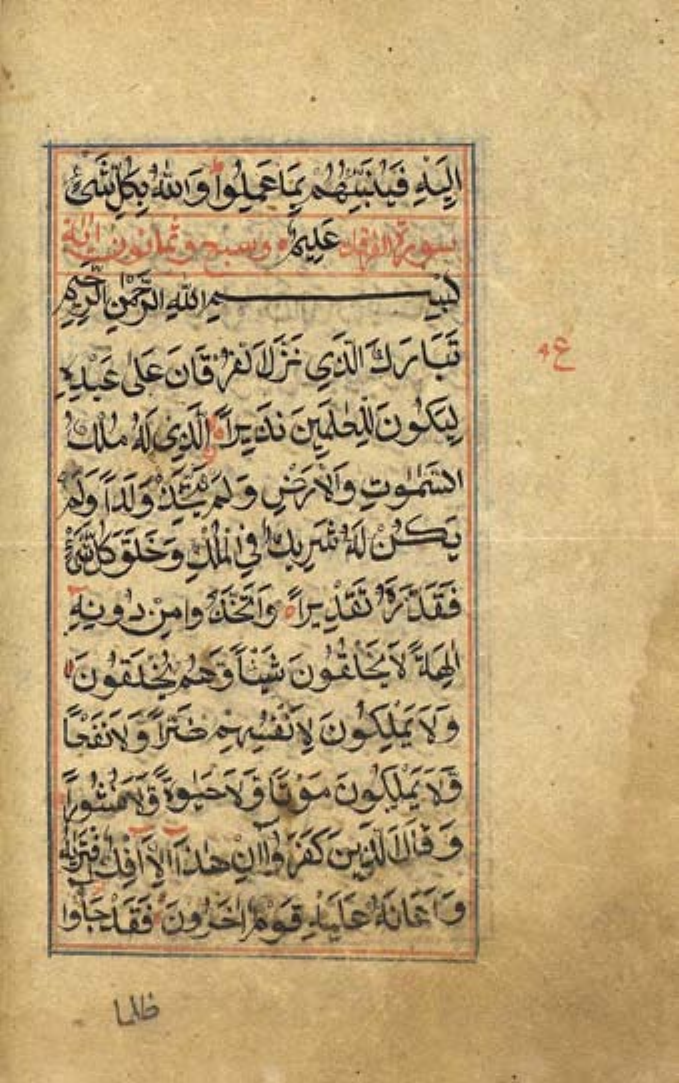 اِلَيْهِ فَيُنَبِّئُهُمْ بِمَا عَمِلُوا وَاللّٰهُ بِكُلِّ شَیْءٍ
سورة الفرقان عَلِيْمٌ ه وسبع وثمانون اية
بِسْمِ اللّٰهِ الرَّحْمٰنِ الرَّحِيْمِ
تَبَارَكَ الَّذِي نَزَّلَ الْفُرْقَانَ عَلٰى عَبْدِهٖ
لِيَكُونَ لِلْعٰلَمِينَ نَذِيرًا الَّذِى لَهُ مُلْكُ
السَّمٰوٰتِ وَالْاَرْضِ وَلَمْ يَتَّخِذْ وَلَدًا وَلَمْ
يَكُنْ لَهُ شَرِيكٌ فِي الْمُلْكِ وَخَلَقَ كُلَّ شَیْءٍ
فَقَدَّرَهُ تَقْدِيرًا ه وَاتَّخَذُوا مِنْ دُونِهٖ
اٰلِهَةً لَا يَخْلُقُونَ شَيْئًا وَّهُمْ يُخْلَقُونَ
وَلَا يَمْلِكُونَ لِاَنْفُسِهِمْ ضَرًّا وَلَا نَفْعًا
وَّلَا يَمْلِكُونَ مَوْتًا وَّلَا حَيٰوةً وَّلَا نُشُورًا
وَقَالَ الَّذِينَ كَفَرُوا اِنْ هٰذَا اِلَّا اِفْكٌ افْتَرٰىهُ
وَاَعَانَهُ عَلَيْهِ قَوْمٌ اٰخَرُونَ فَقَدْ جَاؤُا
ظلما
ع